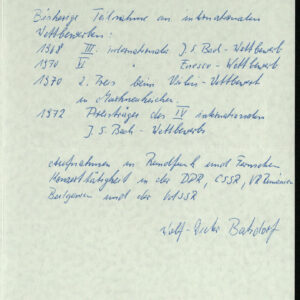 Bisherige Teilnahme an internationalen
Wettbewerben:
1968 III. internationale J. S. Bach-Wettbewerb
1970 V. " Enescu-Wettbewerb
1970 2. Preis beim Violin-Wettbewerb
in Markneukirchen.
1972 Preisträger des IV internationalen
J. S. Bach-Wettbewerbs
Aufnahmen in Rundfunk und Fernsehen
Konzerttätigkeit in der DDR, CSSR, VR Rumänien
Bulgarien und der UdSSR
Wolf-Dieter Batzdorf